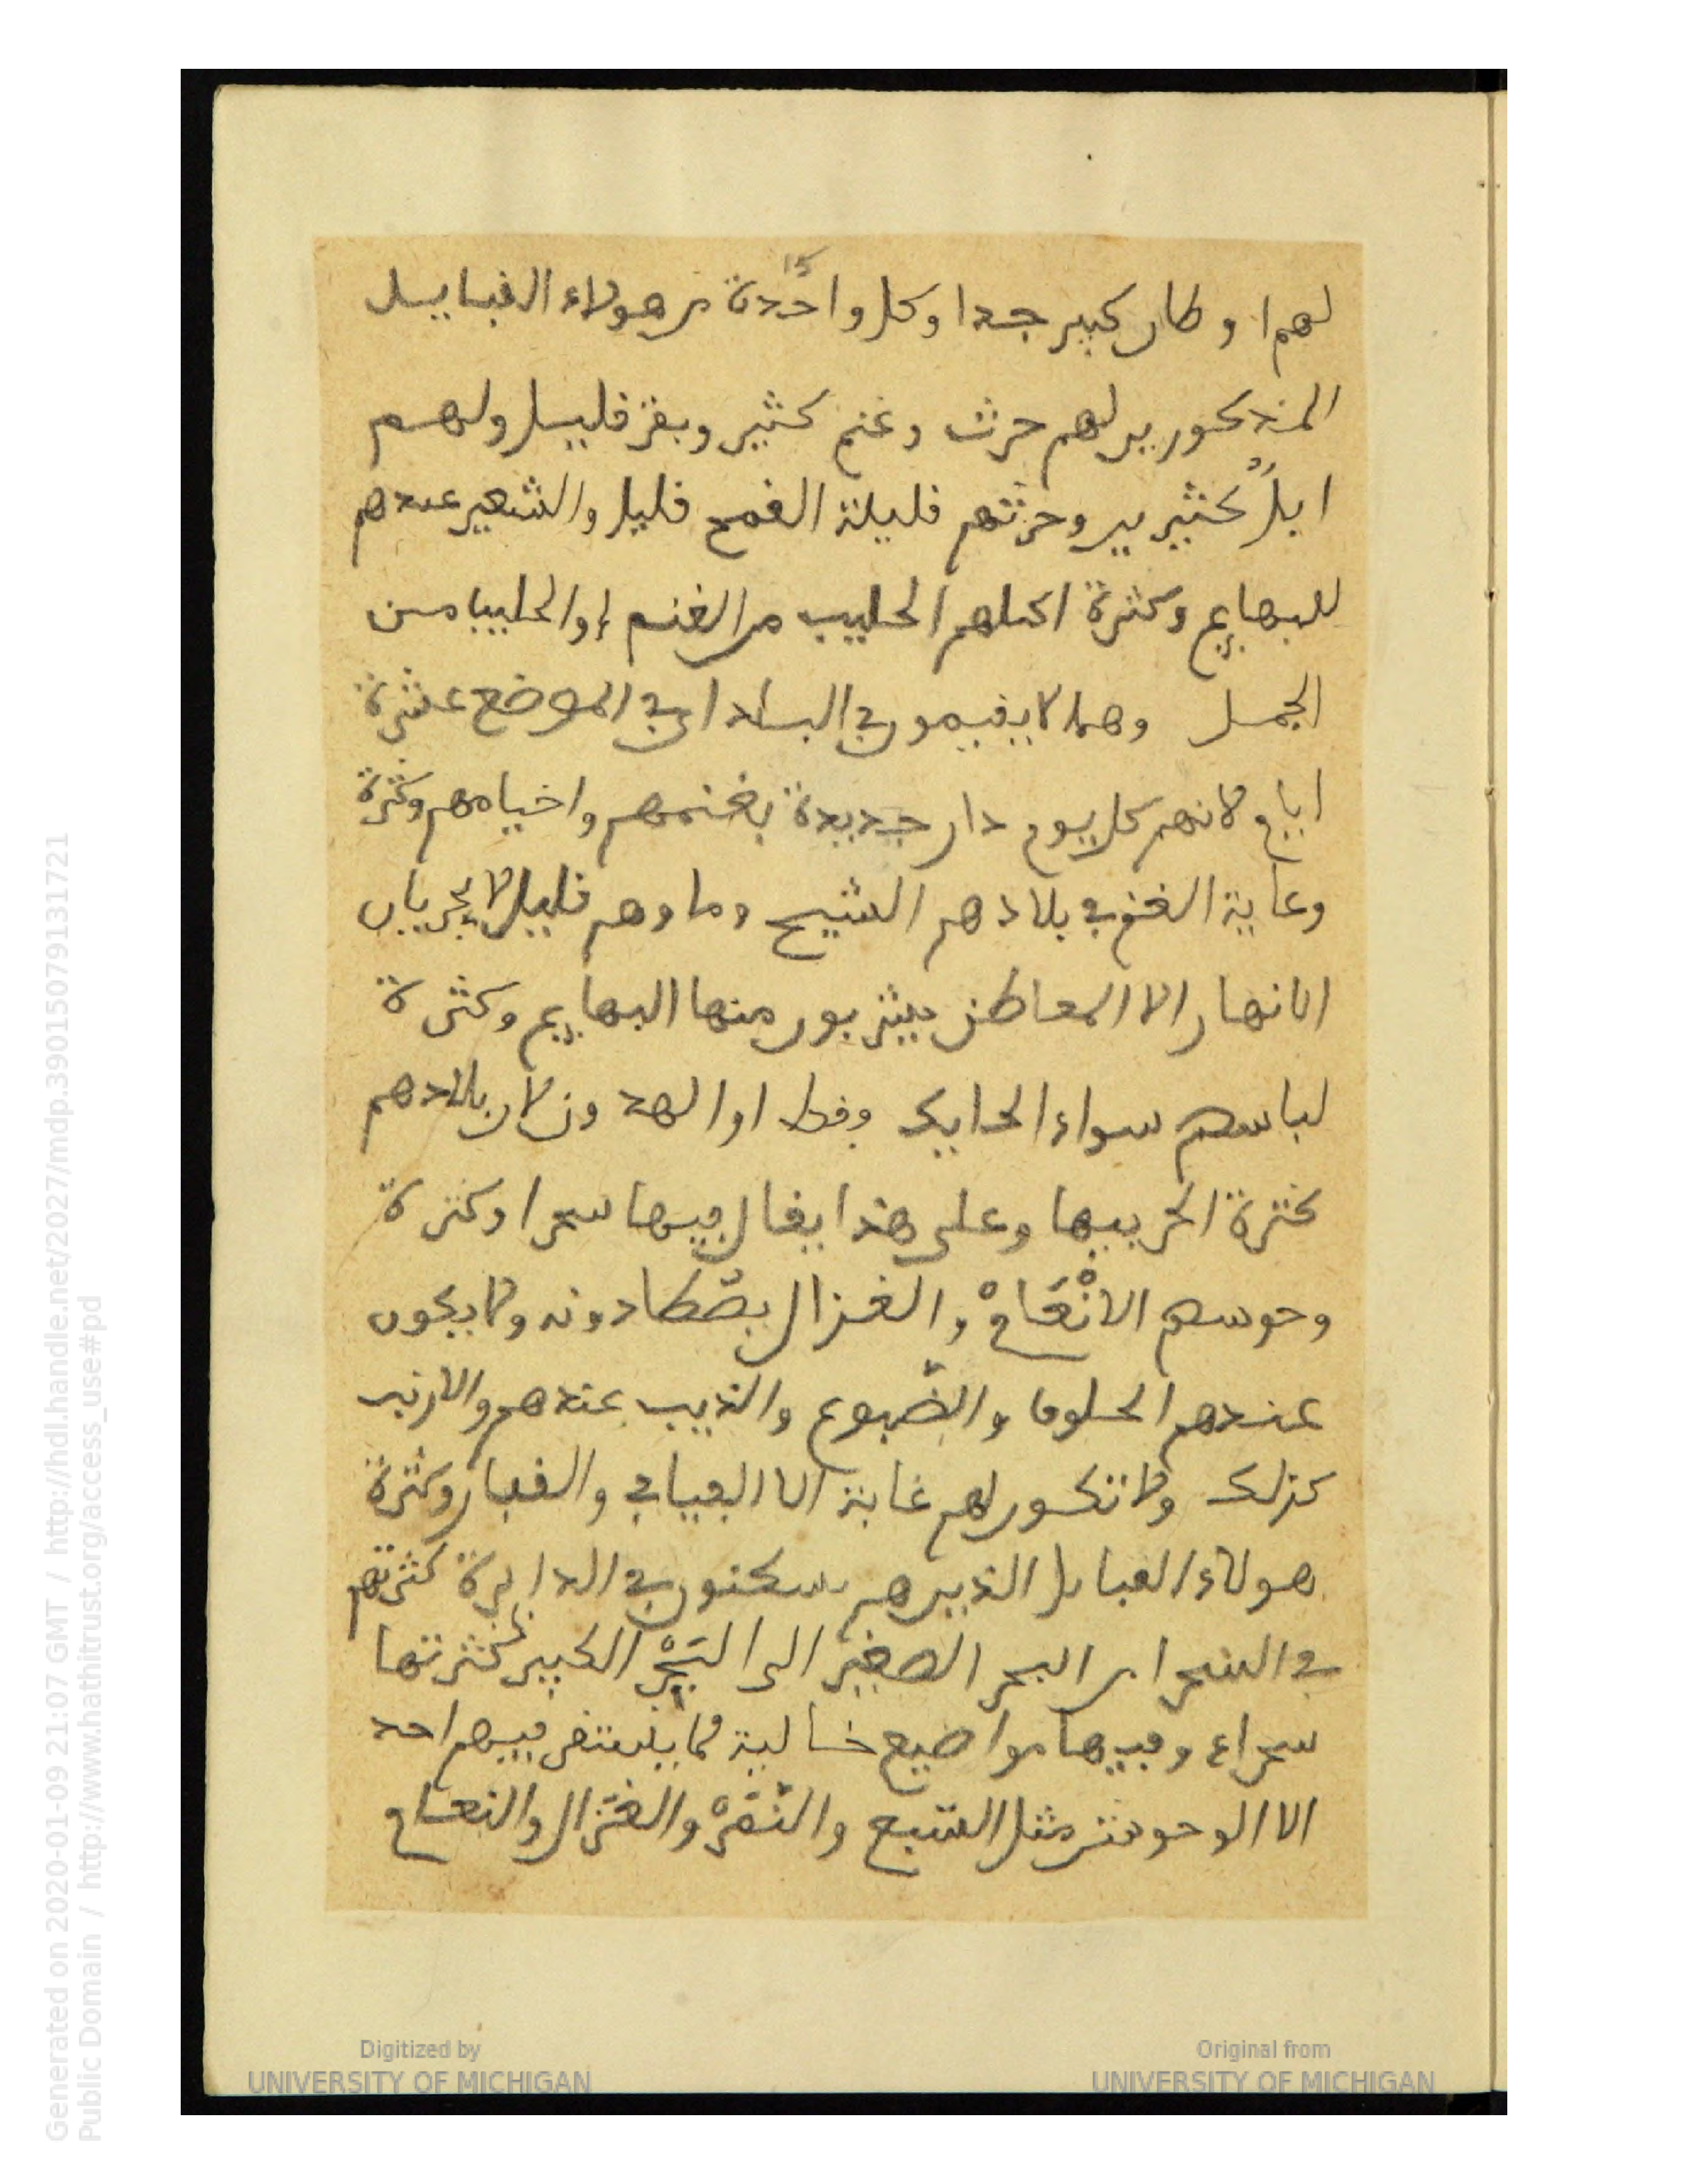 15
لهم اوطان كبير جدا وكل واحدة من هولاء القبايل
المذكورين لهم حرث وغنم كثير وبقر قليل ولهم
ابلٌ كثيرين وحرثهم قليلة القمح قليل والشعير عندهم
للبهايم وكثرة اكلهم الحليب من الغنم او الحليبا من
الجمل وهما لا يقيمون في البلد او في الموضع عشرة
ايام لانهم كل يوم دار جديدة بغنمهم واخيامهم وكثرة
وعاية الغنم في بلادهم الشيح وماوهم قليل لا يجريان
الانهار الا المعاطن يشربون منها البهايم وكثرة
لباسهم سواء الحايك وقط او الهدون لان بلادهم
كثرة الحر فيها وعلى هذا يقال فيها سحرا وكثرة
وحوسهم الانْعَامْ والغزال يصْطادونه ولا يكون
عندهم الحلوف والضّبوع والذيب عندهم والارنب
كذلك ولا تكون لهم غابة الا الفيافي والقفار وكثرة
هولاء القبايل الذين هم يسكنون في الدايرة كثرتهم
في السحرا من البحر الصغير الى البَحْر الكبير كثرتها
سحراء وفيها مواضيع خالية ما يلتقى فيهم احد
الا الوحوش مثل السبع والنّمْرْ والغَزال والنعام
Generated on 2020-01-09 21:07 GMT / http://hdl.handle.net/2027/mdp.39015079131721
Public Domain / http://www.hathitrust.org/access_use#pd
Digitized by
UNIVERSITY OF MICHIGAN
Original from
UNIVERSITY OF MICHIGAN